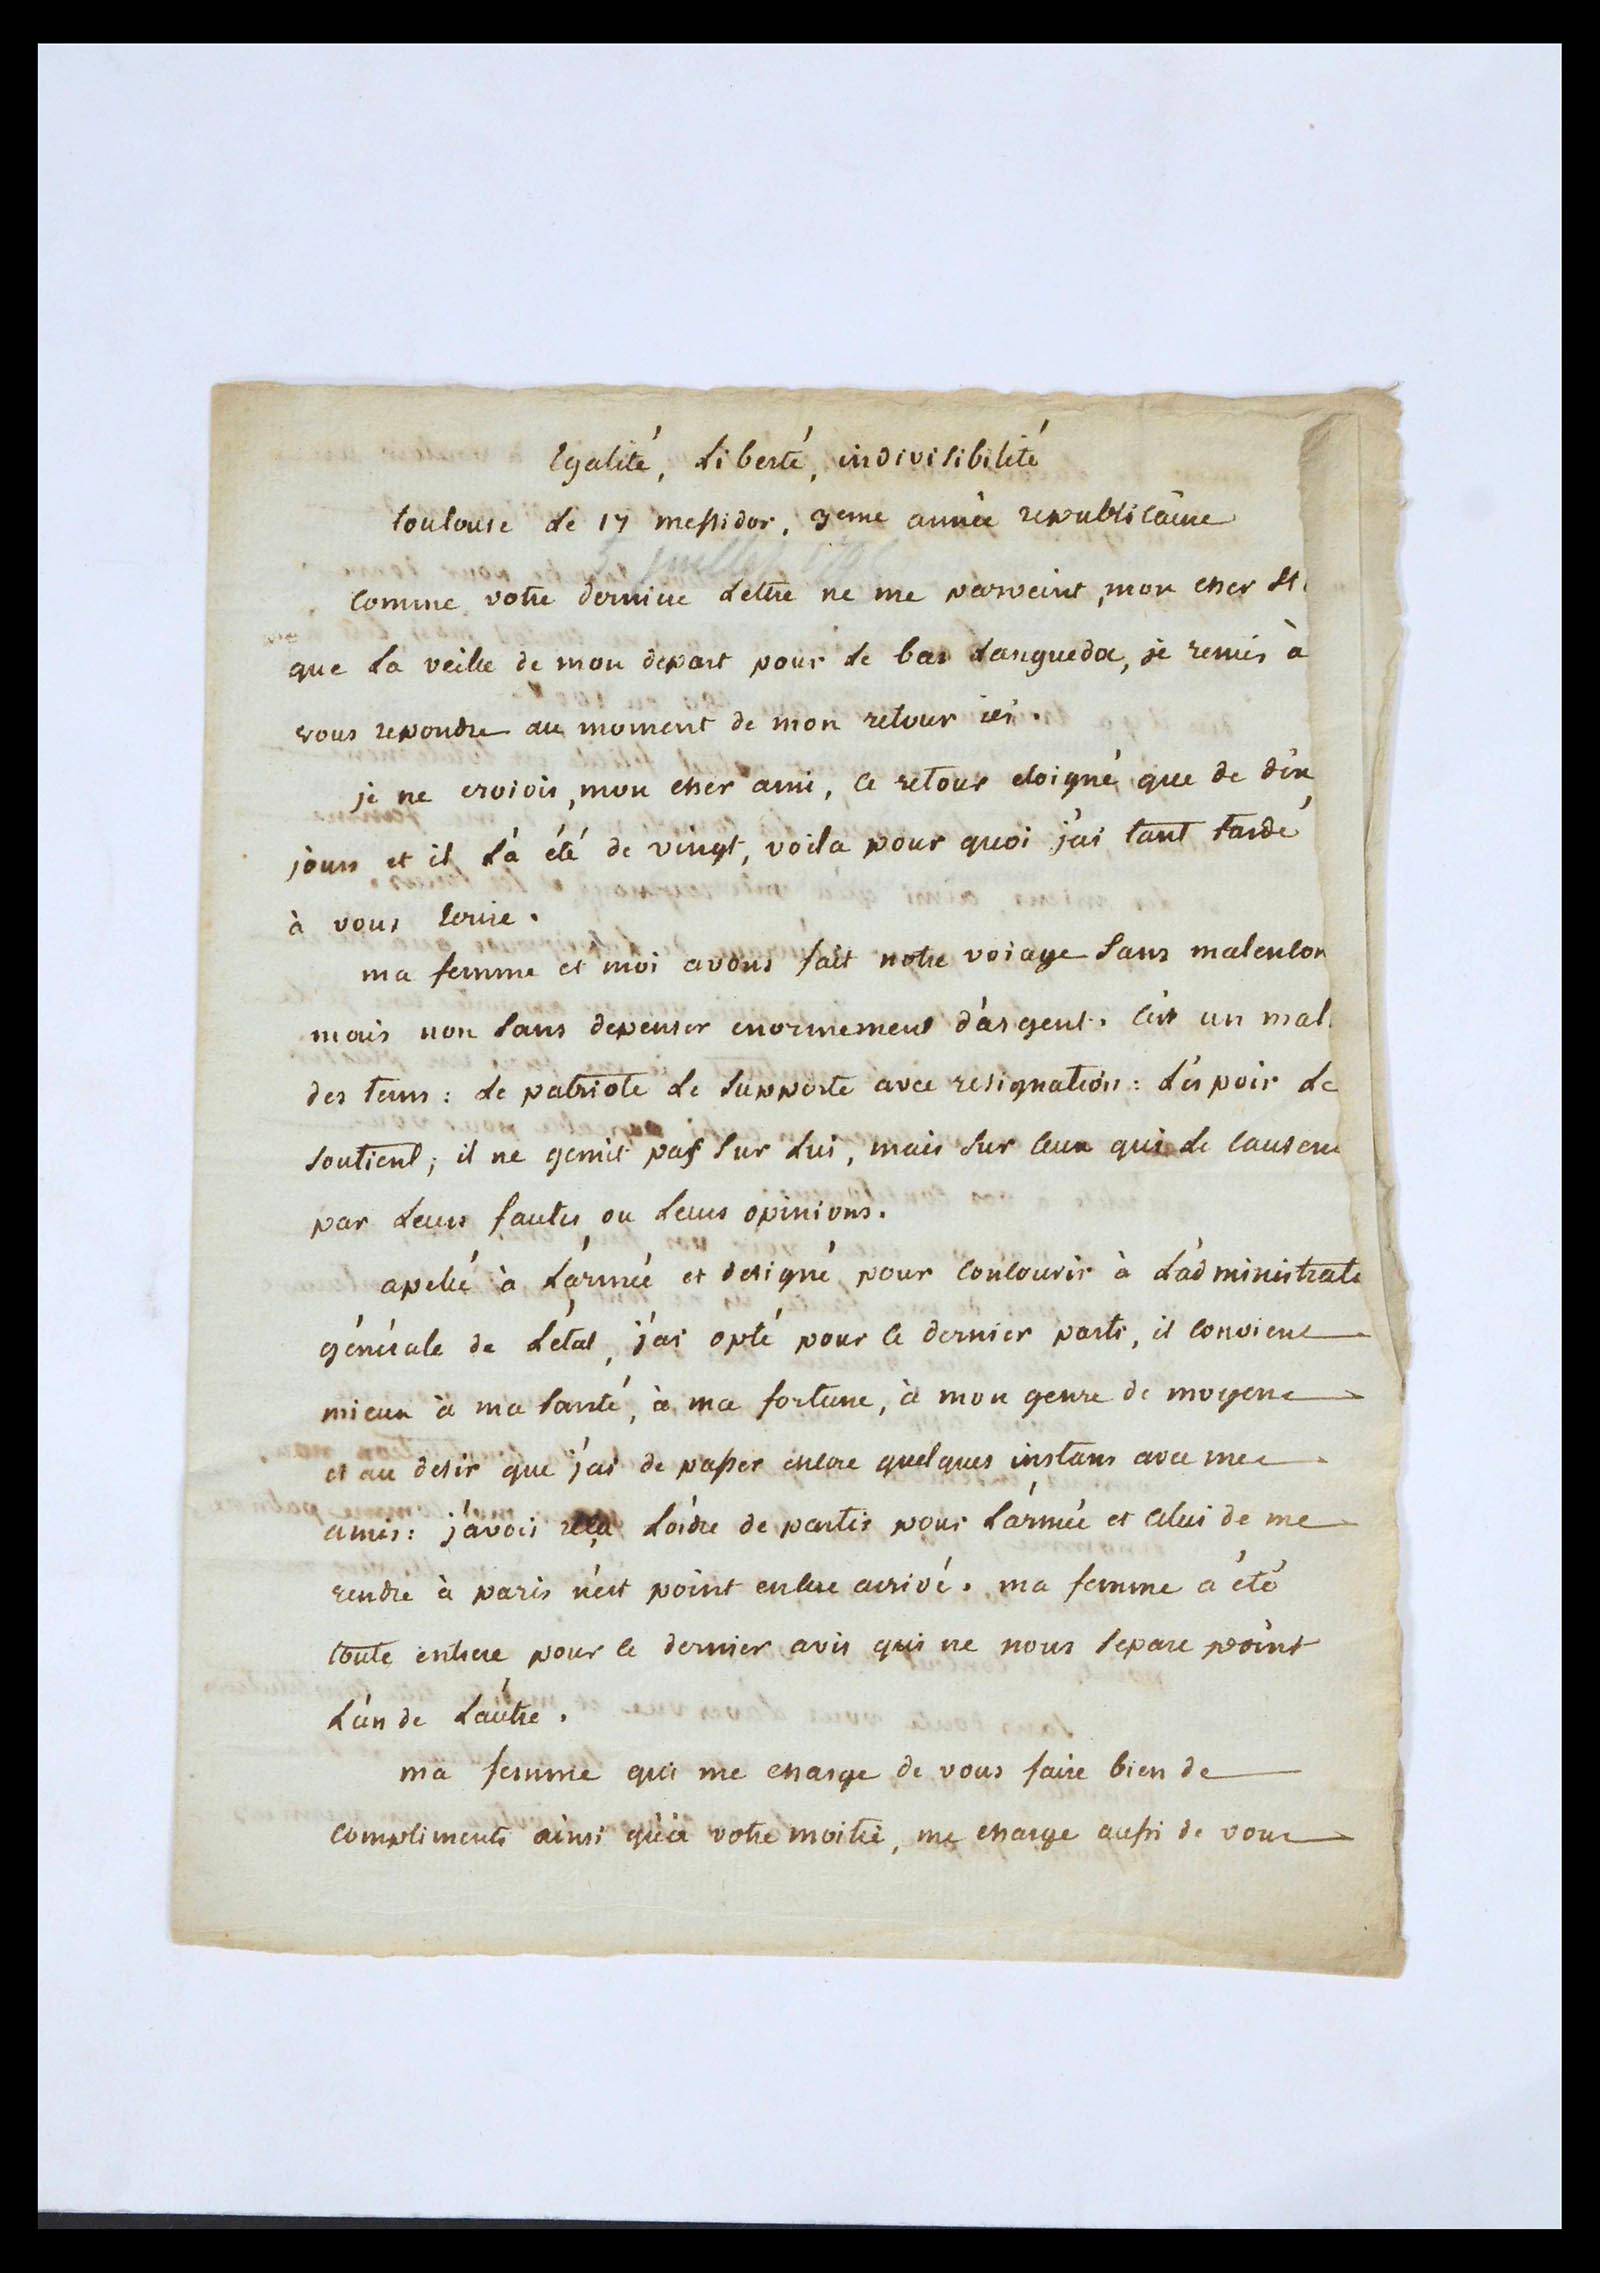 Egalité, Liberté, indivisibilité
toulouse le 17 messidor, 3eme année republicaine
5 juillet 179
Comme votre derniere Lettre ne me parveint, mon cher St
que La veille de mon depart pour Le bas Languedoc, je remis à
vous repondre au moment de mon retour ici.
je ne croiois, mon cher ami, ce retour eloigné que de dix
jours et il L'a été de vingt, voila pour quoi j'ai tant tardé
à vous Ecrire.
ma femme et moi avons fait notre voiage Sans malencon
mais non Sans depenser enormement d'argent. C'est un mal
des tems : Le patriote Le Supporte avec resignation : L'espoir Le
Soutient; il ne gemit pas Sur Lui, mais Sur Ceux qui Le Causent
par Leurs fautes ou Leurs opinions.
apellé à L'armée et designé pour Concourir à L'administrati
générale de L'état, j'ai opté pour Ce dernier parti, il Convient
mieux à ma Santé, à ma fortune, à mon genre de moyens
et au desir que j'ai de passer encore quelques instans avec mes
amis : j'avois reçu L'ordre de partir pour L'armée et Celui de me
rendre à paris n'est point encore arrivé. ma femme a été
toute entiere pour Ce dernier avis qui ne nous Separe point
L'un de L'autre.
ma femme qui me charge de vous faire bien de
Compliments ainsi qu'a votre moitié, me charge aussi de vous